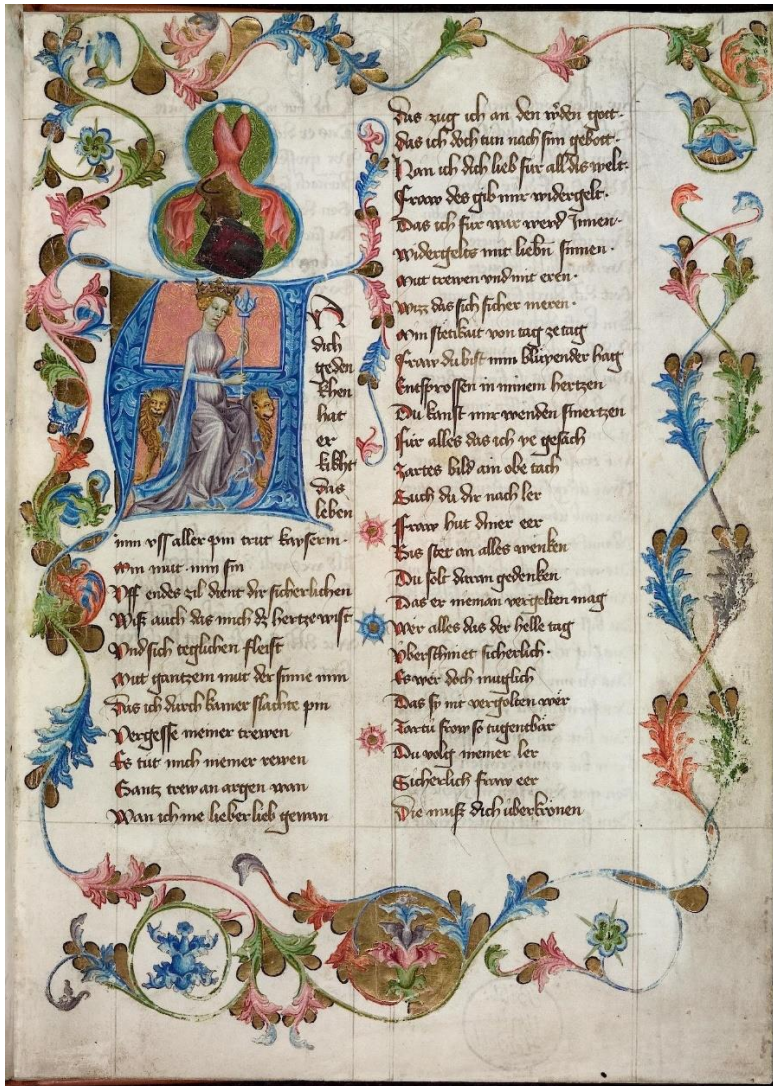 An
dich
geden
khen
hat
er
kikht
das
leben
mín vss aller pín trut kayserin·
Mín mut mín sin
Vff endes zil dient dir sicherlichen
Wiß auch das mich dz hertze wist
Vnd sich teglichen fleist
Mit gantzem mut der sinne mín
Das ich durch kainer slachte pín
Vergesse meiner trewen
Es tut mich meiner rewen
Gantz trew an argen wan
Wan ich nie lieber lieb gewan
1
Das zug ich an den w̃den gott·
das ich doch tun nach sim gebott·
Han ich dich lieb für all dis welt·
Fraw des gib mir widergelt·
Das ich für war werd Innen·
Widergelts mit liebn̄ sinnen·
Mit trewen vnd mit eren·
Wizz das sich sicher meren·
Min stetikait von tag ze tag
Fraw du bist min blüyender hag
Entsprossen in minem hertzen
Du kanst mir wenden smertzen
Für alles das ich ye gesach
Zartes bild ain obe tach
Such du dir nach ler
Fraw hut diner eer
Bis stet an alles wenken
Du solt daran gedenken
Das er nieman vergelten mag
Wer alles das der helle tag
Vberschinet sicherlich·
Es wer doch muglich
Das si nit vergolten wër
Zartü frow so tugentbär
Du volg meiner ler
Sicherlich fraw eer
Die muß dich überkrönen